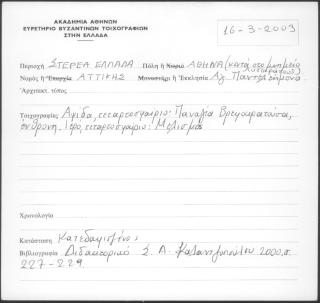 ΑΚΑΔΗΜΙΑ ΑΘΗΝΩΝ
ΕΥΡΕΤΗΡΙΟ ΒΥΖΑΝΤΙΝΩΝ ΤΟΙΧΟΓΡΑΦΙΩΝ
ΣΤΗΝ ΕΛΛΑΔΑ
16-3-2003
Περιοχή ΣΤΕΡΕΑ ΕΛΛΑΔΑ Πόλη ή Χωριό ΑΘΗΝΑ (κατά στο μνημείο Λυσικράτους)
Νομός ή Επαρχία ΑΤΤΙΚΗΣ Μοναστήρι ή Ἐκκλησία Αγ. Παντελεήμονα
Ἀρχιτεκτ. τύπος
Τοιχογραφίες Αψίδα, τεταρτοσφαίριο: Παναγία Βρεφοκρατούσα,
ένθρονη. Ιερό, τεταρτοσφαίριο: Μελισμός
Χρονολογία
Κατάσταση Κατεδαφισμένος
Βιβλιογραφία Διδακτορικό Σ. Α. Καλαντζοπούλου 2000, σ.
227-229